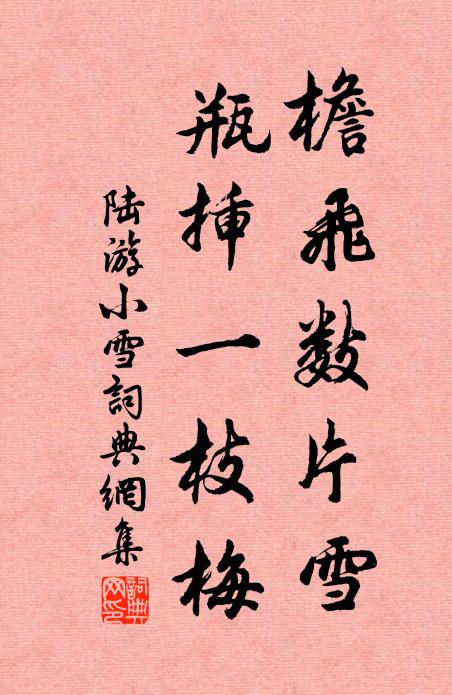 檐飛數片雪
瓶揷一枝梅
陆游小雪詞典網集
詞典网印